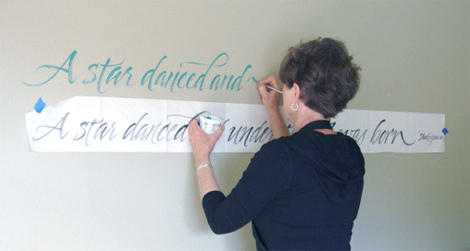 A star danced and
A star danced under was born
Shakespeare